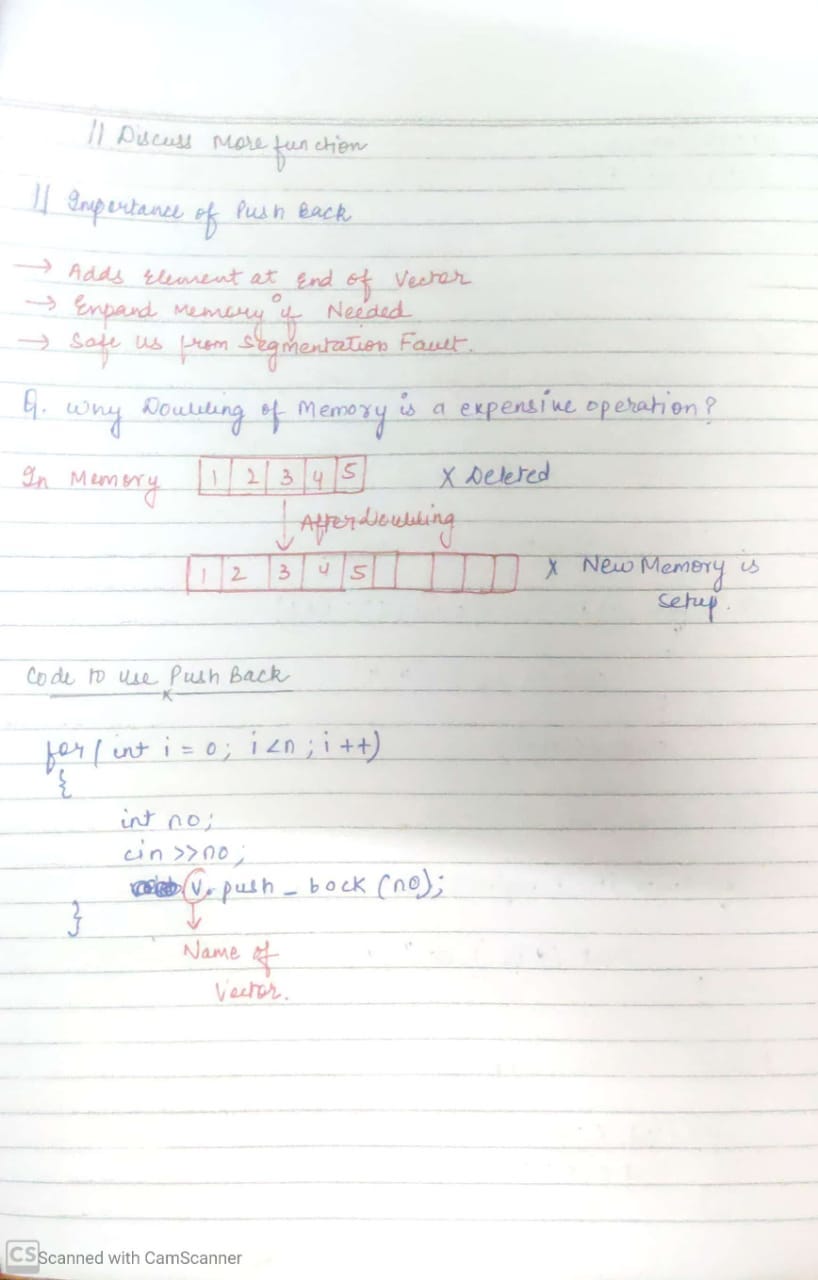 // Discuss More function
// Importance of Push Back
→ Adds Element at End of Vector
→ Expand Memory if Needed
→ Safe us from Segmentation Fault.
Q. Why Doubling of Memory is a expensive operation?
In Memory 1 2 3 4 5 X Deleted
After doubling
1 2 3 4 5 X New Memory is
setup.
Code to use Push Back
for( int i = 0; i<n ; i++)
{
int no;
cin >>no;
v. push_back (no);
}
Name of
Vector.
CS Scanned with CamScanner